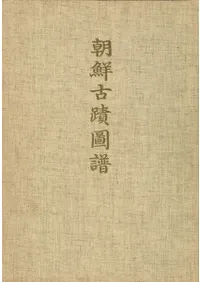 朝鮮古蹟圖譜